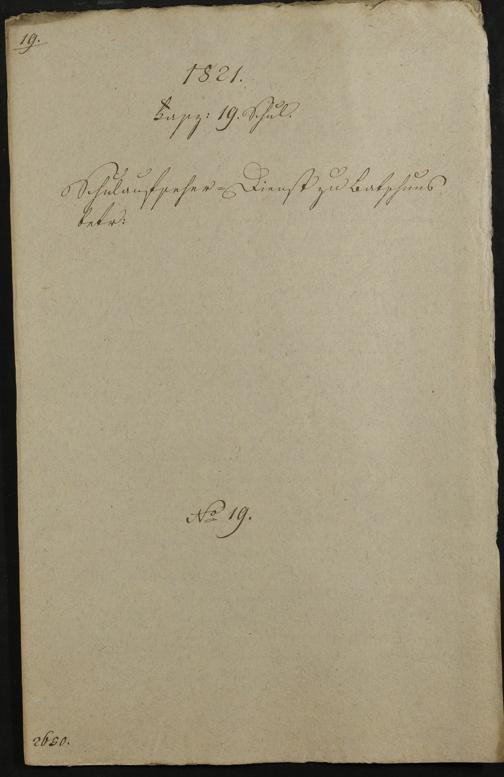 19.
1821.
Fasz: 19. Schul.
Schulaufseher-Dienst zu Batschuns
betr:
No 19.
2680.